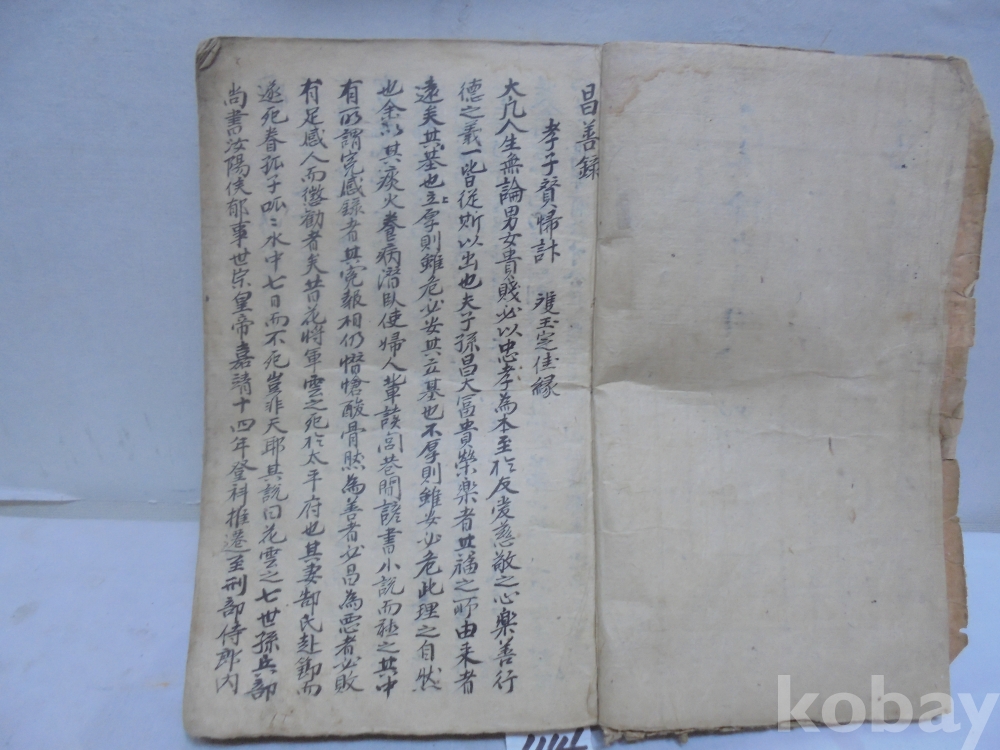 昌善錄
孝子賛㷌訃 䕶玉定佳緣
大凡人生無論男女貴賤必以忠孝爲本至於反愛慈敬之心樂善行
德之義一皆從斯以出也夫子孫昌大冨貴榮樂者其福之所由來者
遠矣其基也立厚則雖危必安其立基也不厚則雖安必危此理之自然
也余以其痰火眷病潛臥使婦人軰談閭巷間諺書小說而聽之其中
有所謂寃感錄者其寃報相仍憯愴酸骨然爲善者必昌爲惡者必敗
有足感人而懲勸者矣昔花將軍雲之死於太平府也其妻郜氏赴卸而
遂死眷孤子呱〻水中七日而不死豈非天耶其說曰花雲之七世孫兵部
尚書汝陽侯郁事世宗皇帝嘉清十四年登科推遷至刑部侍郞內
kobay